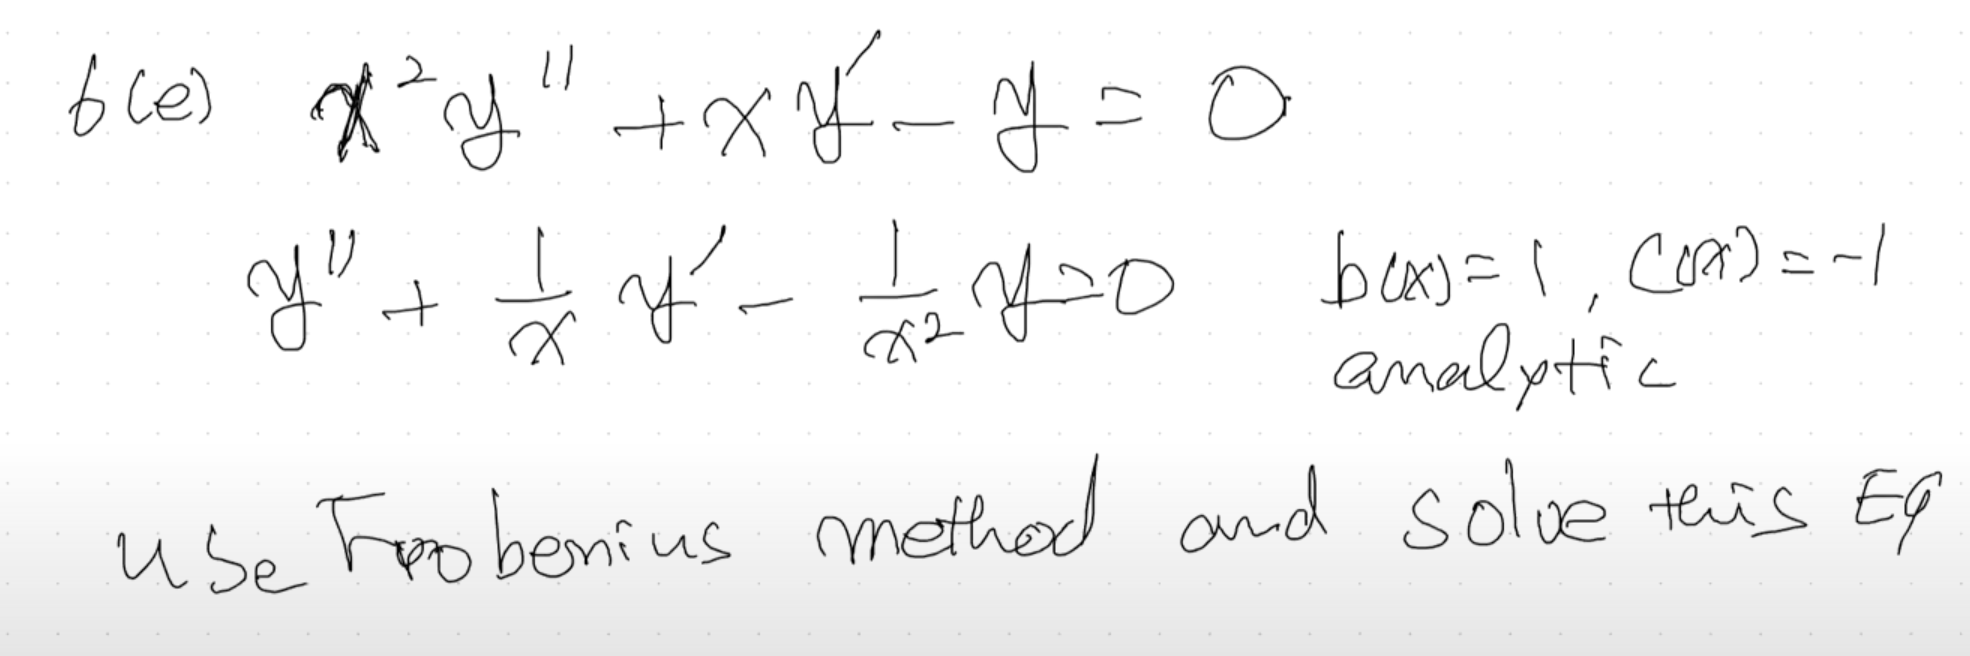 6(e) x²y'' + xy' - y = 0
y'' + 1/x y' - 1/x² y = 0 b(x) = 1, c(x) = -1
analytic
use Frobenius method and solve this EQ